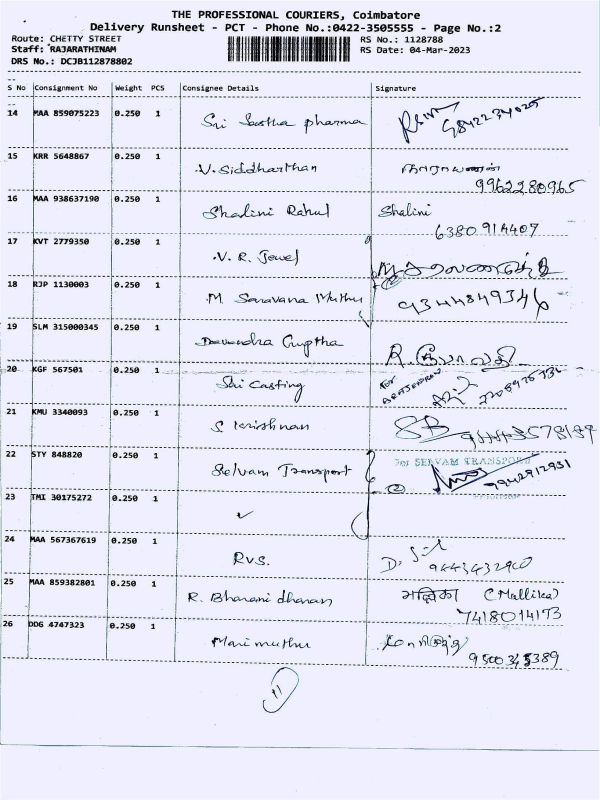 THE PROFESSIONAL COURIERS, Coimbatore
Delivery Runsheet - PCT - Phone No.:0422-3505555 - Page No.:2
Route: CHETTY STREET
RS No.: 1128788
Staff: RAJARATHINAM
RS Date: 04-Mar-2023
DRS No.: DCJB112878802
S No Consignment No Weight PCS Consignee Details Signature
14 MAA 859075223 0.250 1 Sri Sastha pharma 9842234025
15 KRR 5648867 0.250 1 V. Siddharthan நாராயணன்
9962280965
16 MAA 938637190 0.250 1 Shalini Rahul Shalini
6380914407
17 KVT 2779350 0.250 1 V. R. Jewel
18 RJP 1130003 0.250 1 M Saravana Muthu 9344849346
19 SLM 315000345 0.250 1 Devendra Guptha
20 KGF 567501 0.250 1 Sri Casting for
21 KMU 3340093 0.250 1 S Krishnan SB
22 STY 848820 0.250 1 Selvam Transport For SELVAM TRANSPORT
2 9942912931
23 TMI 30175272 0.250 1
24 MAA 567367619 0.250 1 RVS. 9443432900
25 MAA 859382801 0.250 1 R. Bhavani dharan मल्लिका (Mallika)
7418014173
26 DDG 4747323 0.250 1 Marimuthu
9500345389
11